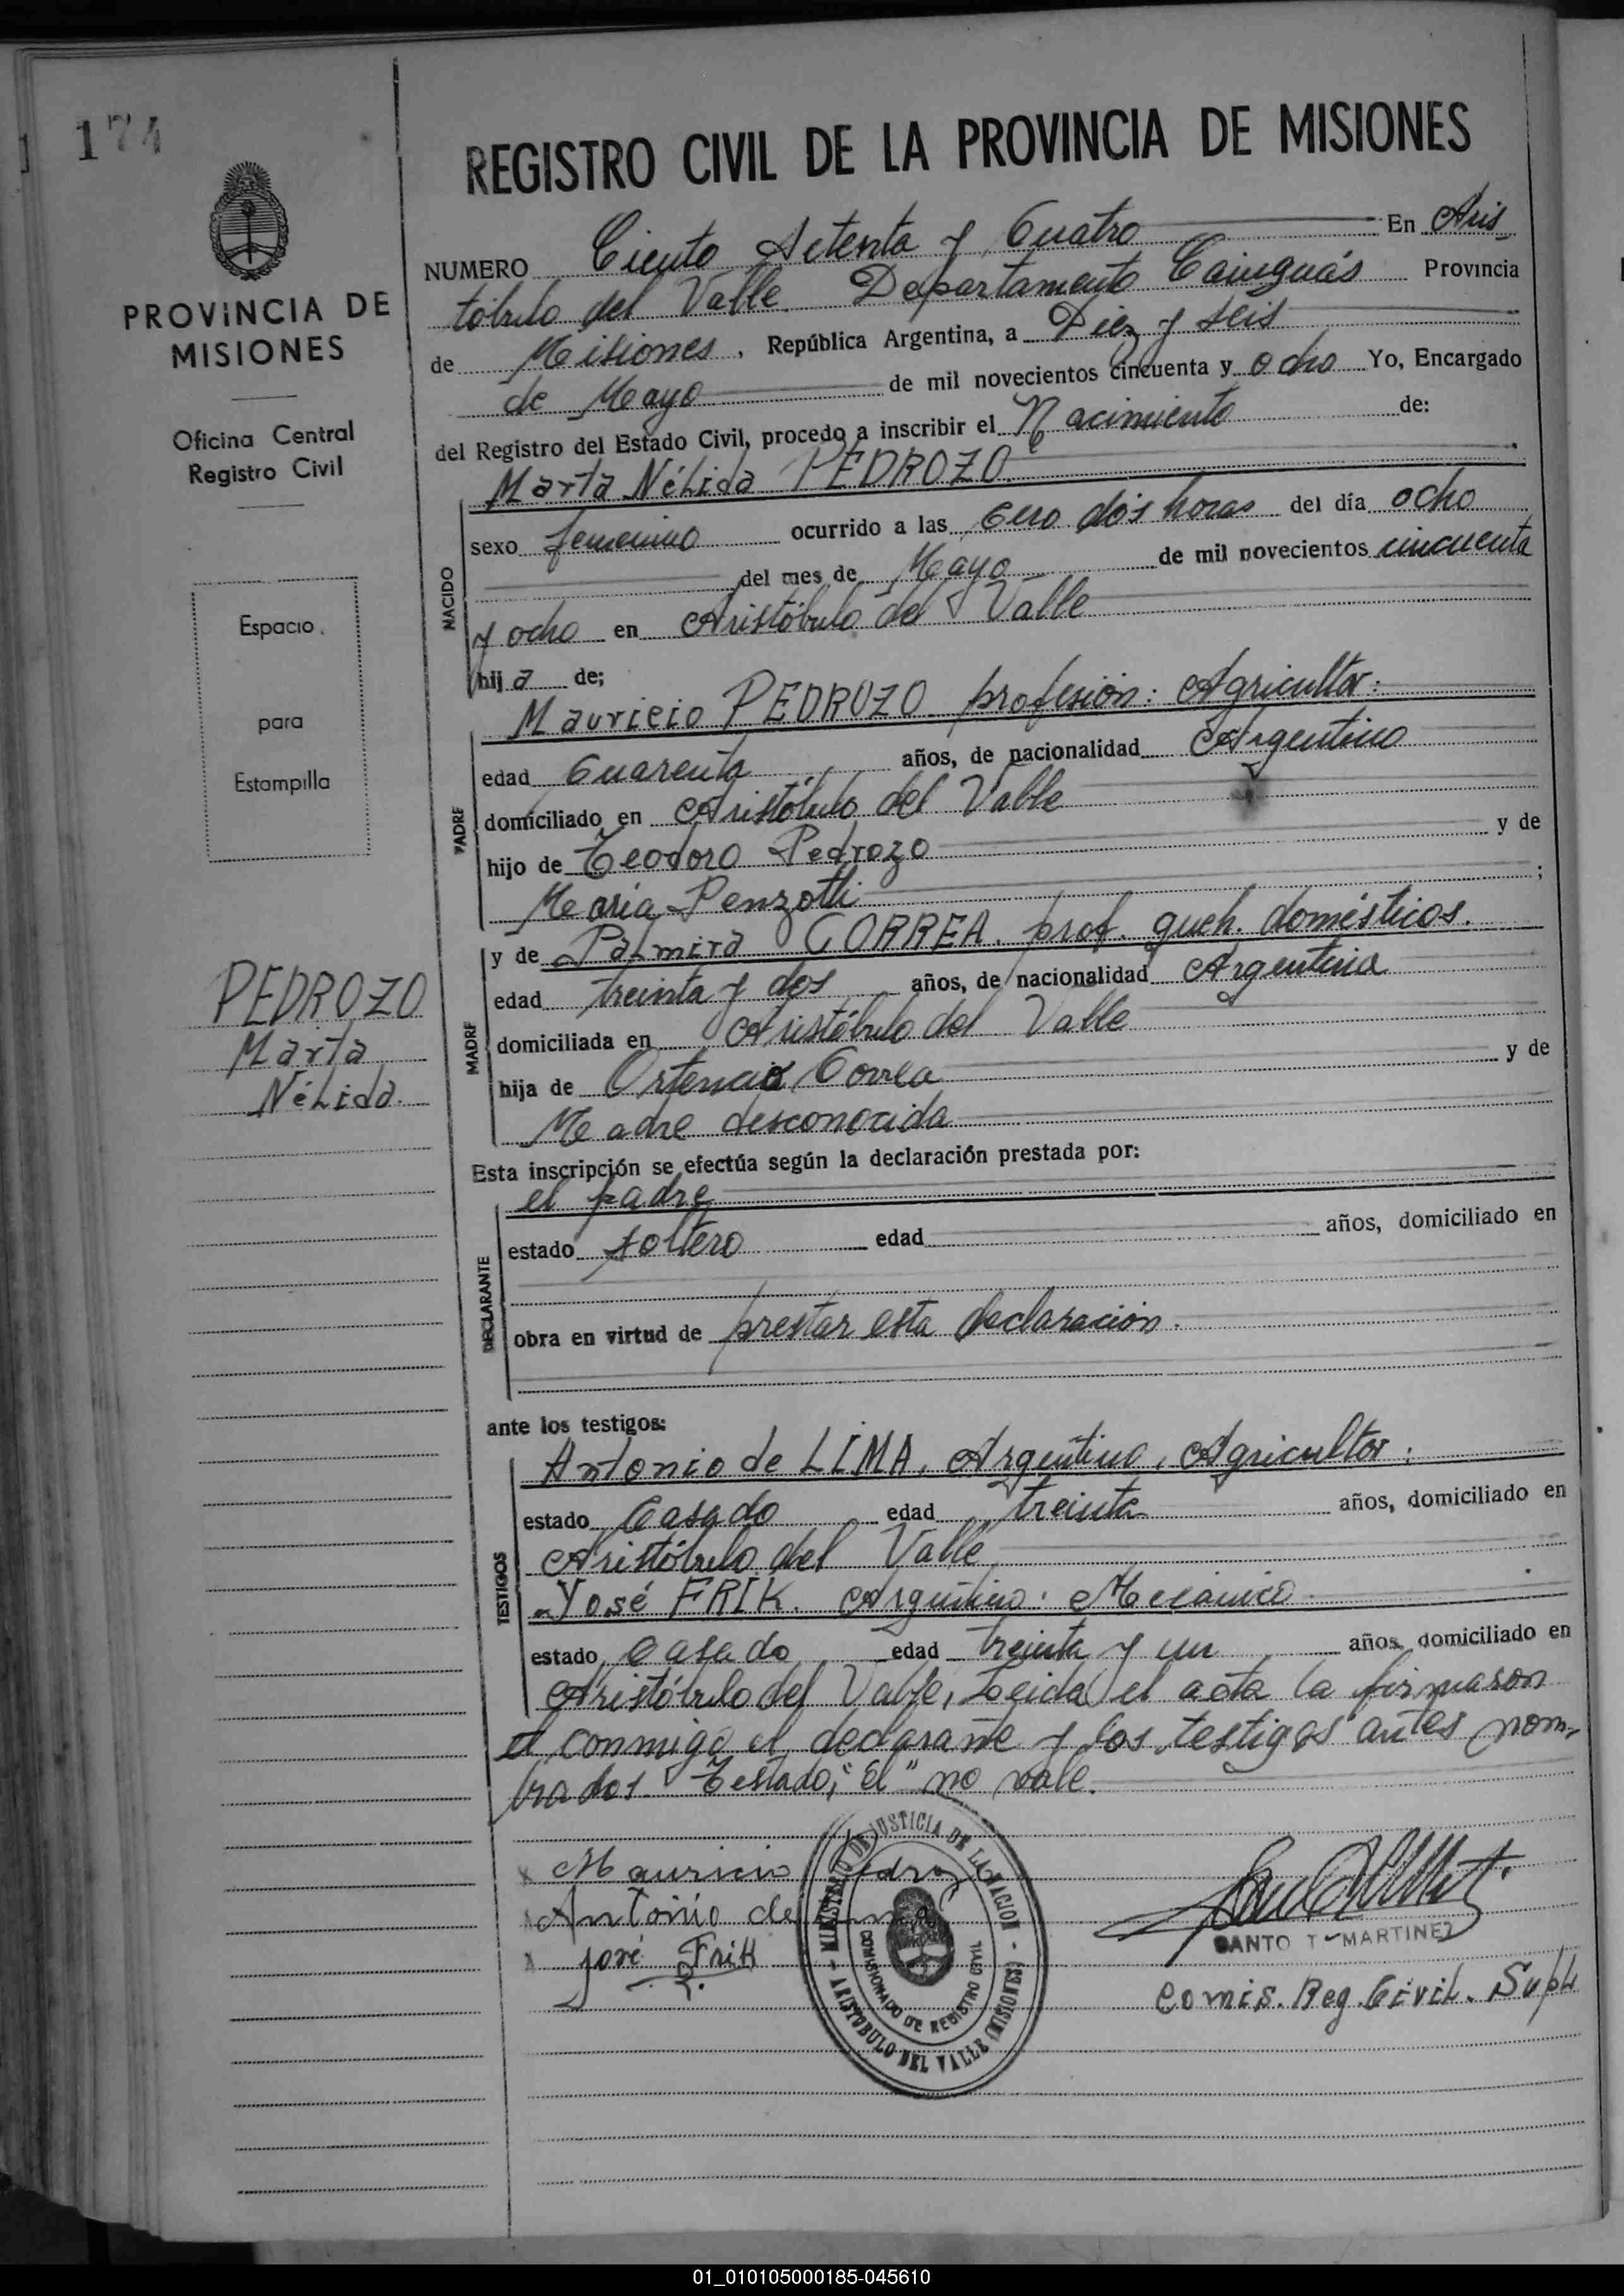 174
PROVINCIA DE
MISIONES
Oficina Central
Registro Civil
Espacio
para
Estampilla
PEDROZO
Marta
Nélida.
REGISTRO CIVIL DE LA PROVINCIA DE MISIONES
NUMERO Ciento Setenta y Cuatro En Aris-
tóbulo del Valle. Departamento Cainguás Provincia
de Misiones, República Argentina, a Diez y seis
de Mayo de mil novecientos cincuenta y ocho Yo, Encargado
del Registro del Estado Civil, procedo a inscribir el Nacimiento de:
Marta Nélida PEDROZO.
NACIDO
sexo femenino ocurrido a las cero dos horas del día ocho
del mes de Mayo de mil novecientos cincuenta
y ocho en Aristóbulo del Valle
hija de;
Mauricio PEDROZO profesión: Agricultor:
PADRE
edad Cuarenta años, de nacionalidad Argentino
domiciliado en Aristóbulo del Valle
hijo de Teodoro Pedrozo y de
María Penzotti ;
y de Palmira CORREA. prof. queh. domésticos.
MADRE
edad treinta y dos años, de nacionalidad Argentina
domiciliada en Aristóbulo del Valle
hija de Ortencio Correa y de
Madre desconocida
Esta inscripción se efectúa según la declaración prestada por:
el padre
DECLARANTE
estado soltero edad años, domiciliado en
obra en virtud de prestar esta declaración.
ante los testigos:
Antonio de LIMA, Argentino, Agricultor:
TESTIGOS
estado Casado edad treinta años, domiciliado en
Aristóbulo del Valle
Yosé FRIK. Argentino: Mecánico
estado Casado edad treinta y un años domiciliado en
Aristóbulo del Valle, Leida el acta la firmaron
el conmigo el declarante y los testigos antes nom-
brados. Testado; "el" no vale.
Mauricio Pedrozo
Antonio de Lima
José Frik
MINISTERIO DE JUSTICIA DE LA NACION - ARISTOBULO DEL VALLE (MISIONES) -
COMISIONADO DE REGISTRO CIVIL
SANTO T MARTINEZ
Comis. Reg. Civil. Supl.
01_010105000185-045610